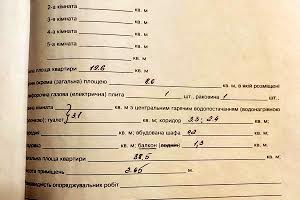 2-а кімната кв. м
3-я кімната кв. м
4-а кімната кв. м
5-а кімната кв. м
площа квартири 19.6 кв. м
окрема (загальна) площею 8.6 кв. м, в якій розміщені
газова (електрична) плита 1 шт., раковина 1 шт.
кімната кв. м з центральним гарячим водопостачанням (водонагрівною
колонкою); туалет 3.1 кв. м; коридор 2.3; 2.4
кв. м; вбудована шафа 0.2
кв. м; балкон (лоджія) 1,3
площа квартири 38,5 кв. м
приміщень 2.45 м
опоряджувальних робіт